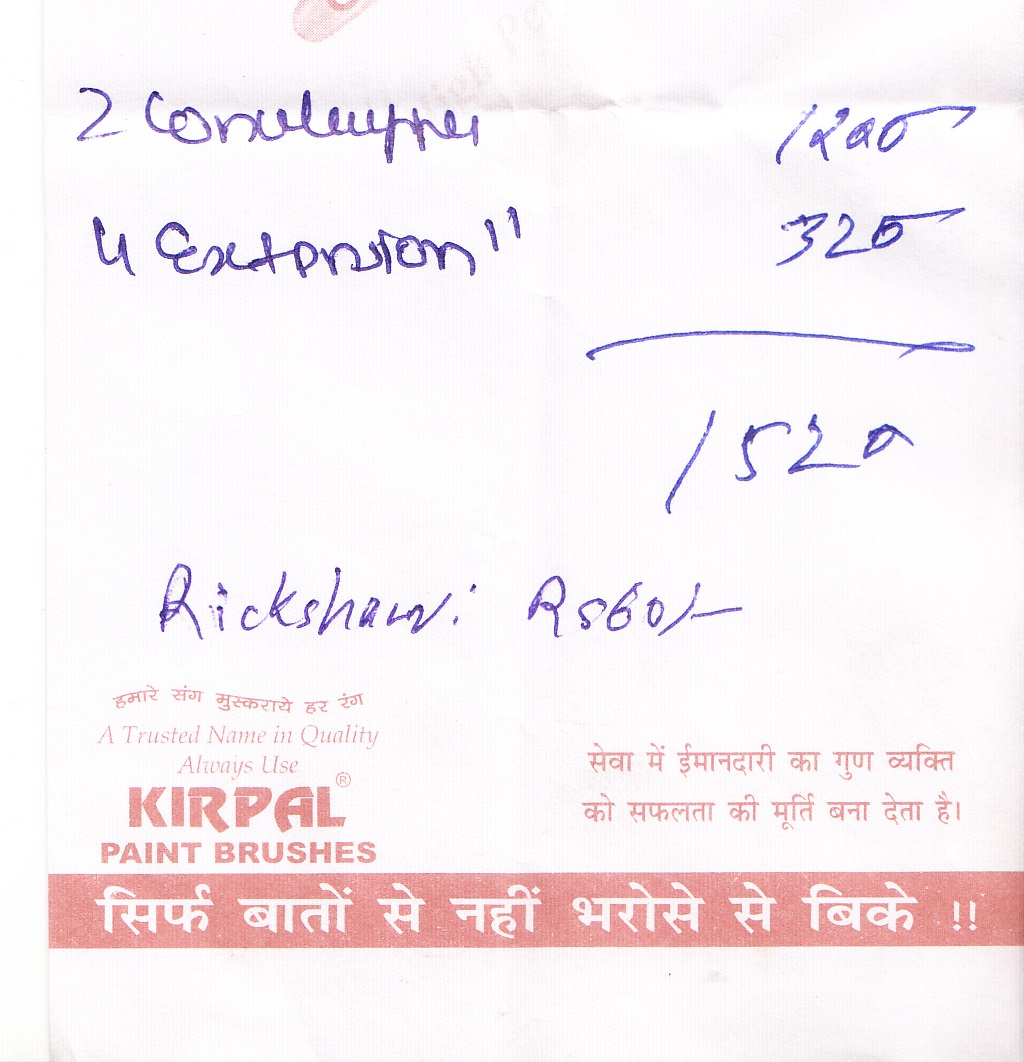 2 1200
4 Extension" 320
1520
Rickshaw: Rs 60/-
हमारे संग मुस्कराये हर रंग
A Trusted Name in Quality
Always Use
KIRPAL®
PAINT BRUSHES
सेवा में ईमानदारी का गुण व्यक्ति
को सफलता की मूर्ति बना देता है।
सिर्फ बातों से नहीं भरोसे से बिके !!